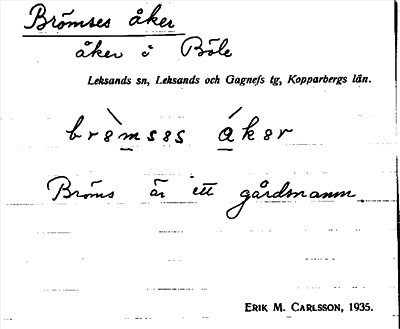 Brömses åker
åker i Böle
Leksands sn, Leksands och Gagnefs tg, Kopparbergs län.
brømses åker
Bröms är ett gårdsnamn.
ERIK M. CARLSSON, 1935.